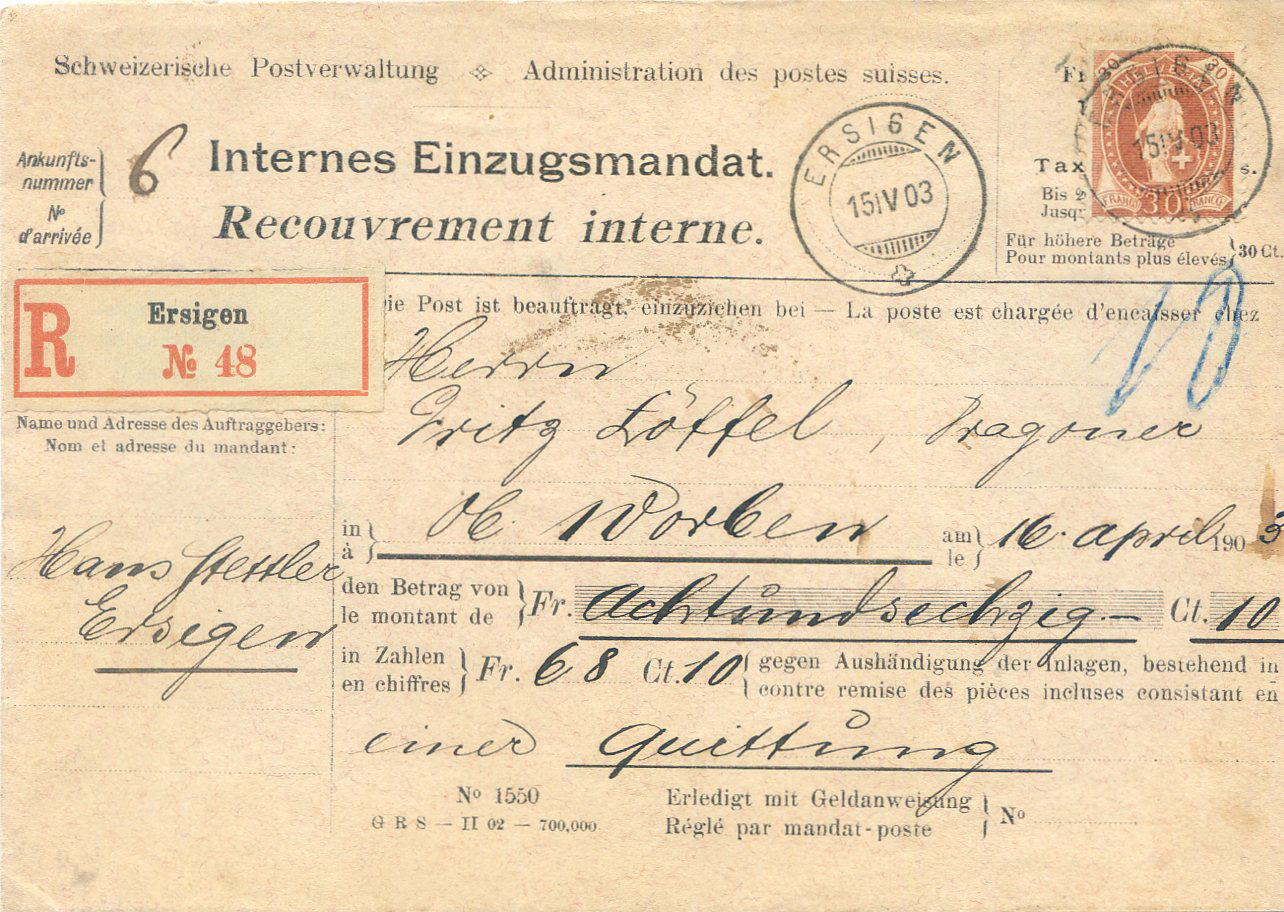 Schweizerische Postverwaltung Administration des postes suisses.
Ankunfts-
nummer
No
d'arrivée
6
Internes Einzugsmandat.
Recouvrement interne.
ERSIGEN
15 IV 03
Fr
Tax
s.
Bis 2
Jusqu'
Für höhere Beträge
Pour montants plus élevés
30 Ct.
30 HELVETIA 30
FRANCO 30 FRANCO
15 IV 03
R
Ersigen
No 48
ie Post ist beauftragt, einzuziehen bei — La poste est chargée d'encaisser chez
10
Herrn
Fritz Löffel, Dragoner
Name und Adresse des Auftraggebers:
Nom et adresse du mandant:
Hans Stettler
Ersigen
in
à
Ob. Worben
am
le
16. april 1903
den Betrag von
le montant de
Fr. Achtundsechzig.– Ct. 10
in Zahlen
en chiffres
Fr. 68 Ct. 10
gegen Aushändigung der Inlagen, bestehend in
contre remise des pièces incluses consistant en
einer Quittung
No 1550
G R S — II 02 — 700,000
Erledigt mit Geldanweisung
Réglé par mandat-poste
No